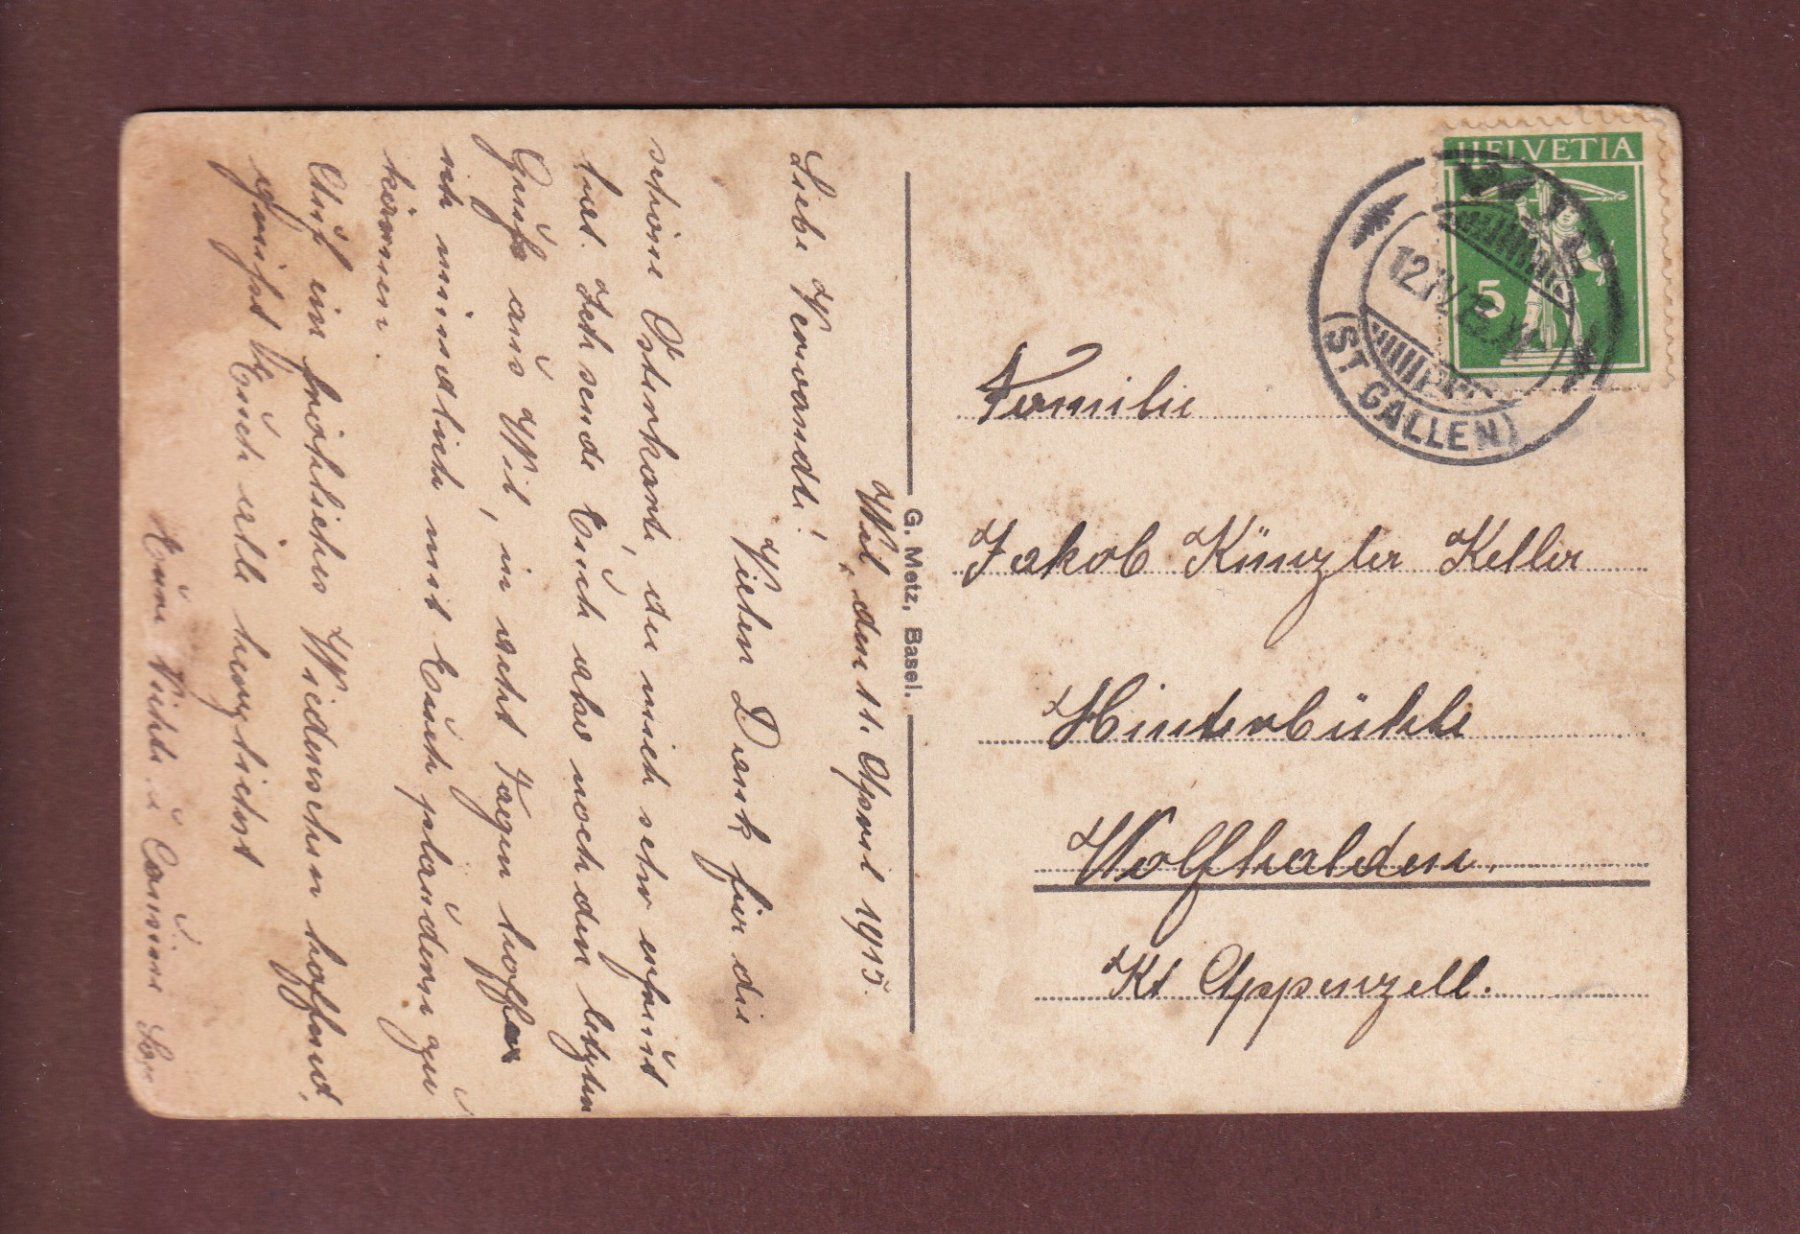 Wil, den 11. April 1915.
Liebe Verwandte!
Vielen Dank für die
schöne Osterkarte, die mich sehr erfreut
hat. Ich sende Euch aber noch den letzten
Gruß aus Wil, in acht Tagen hoffe
ich mündlich mit Euch plaudern zu
können.
Auf ein fröhliches Wiedersehen hoffend,
grüsst Euch alle herzlichst
Eure Nichte &
G. Metz, Basel.
HELVETIA
5
12 IV 15
(ST GALLEN)
Familie
Jakob Künzler Keller
Hinterbühle
Wolfhalden.
Kt Appenzell.